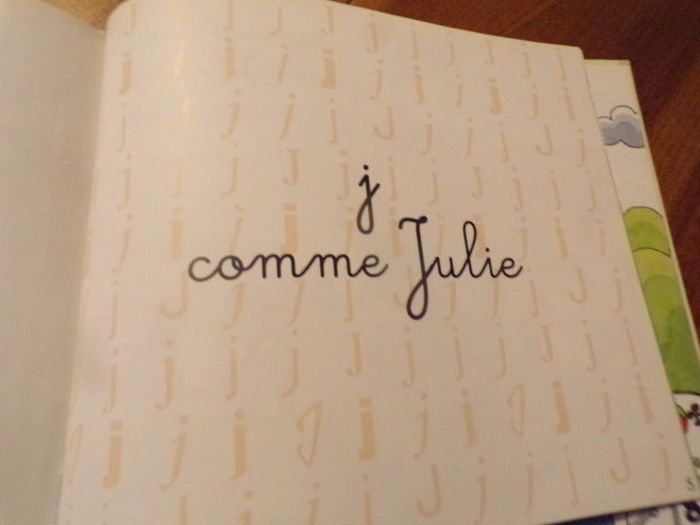 j
comme Julie